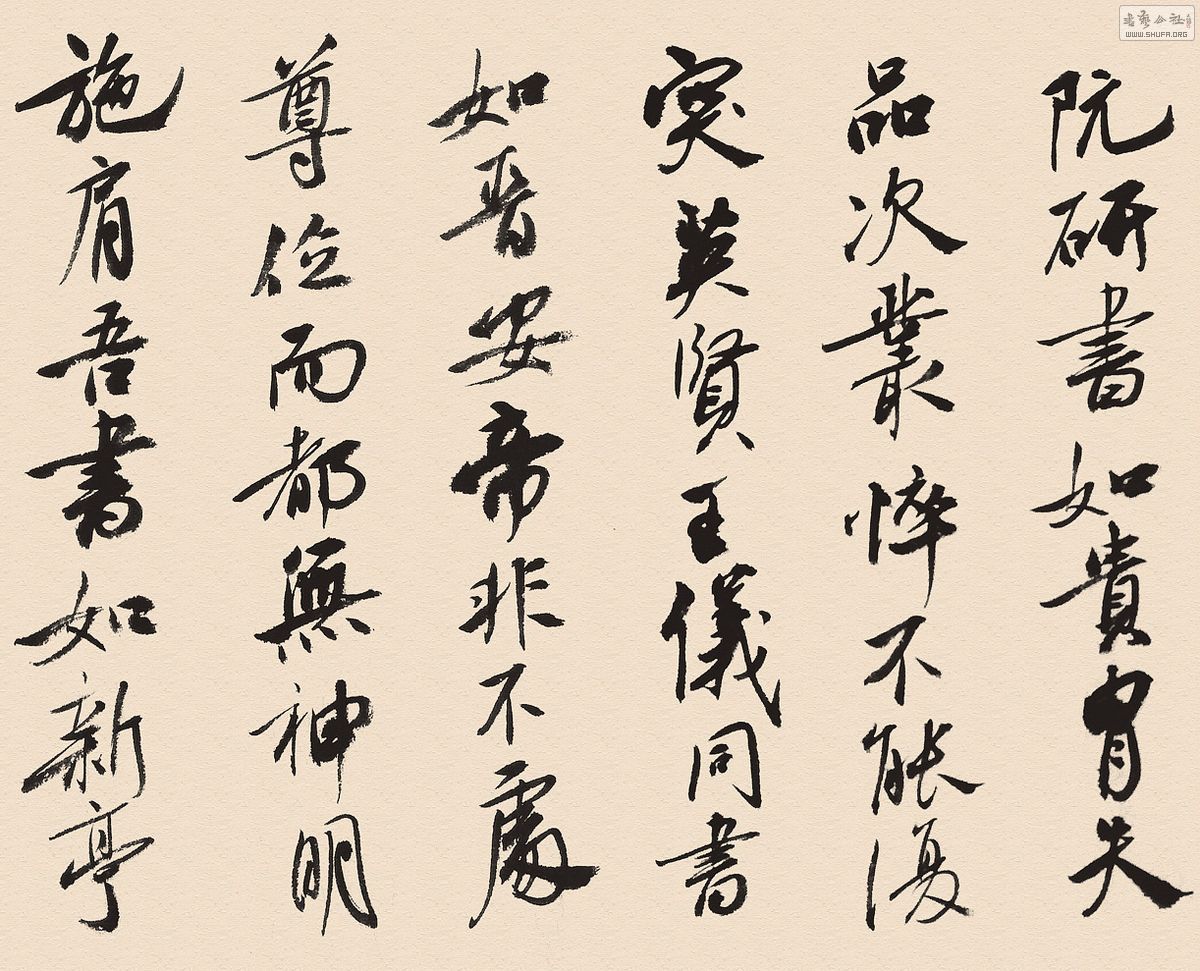 阮研書如貴胄失
品次叢悴不能復
突英賢王儀同書
如晋安帝非不處
尊位而都無神明
施肩吾書如新亭
書艺公社
WWW.SHUFA.ORG